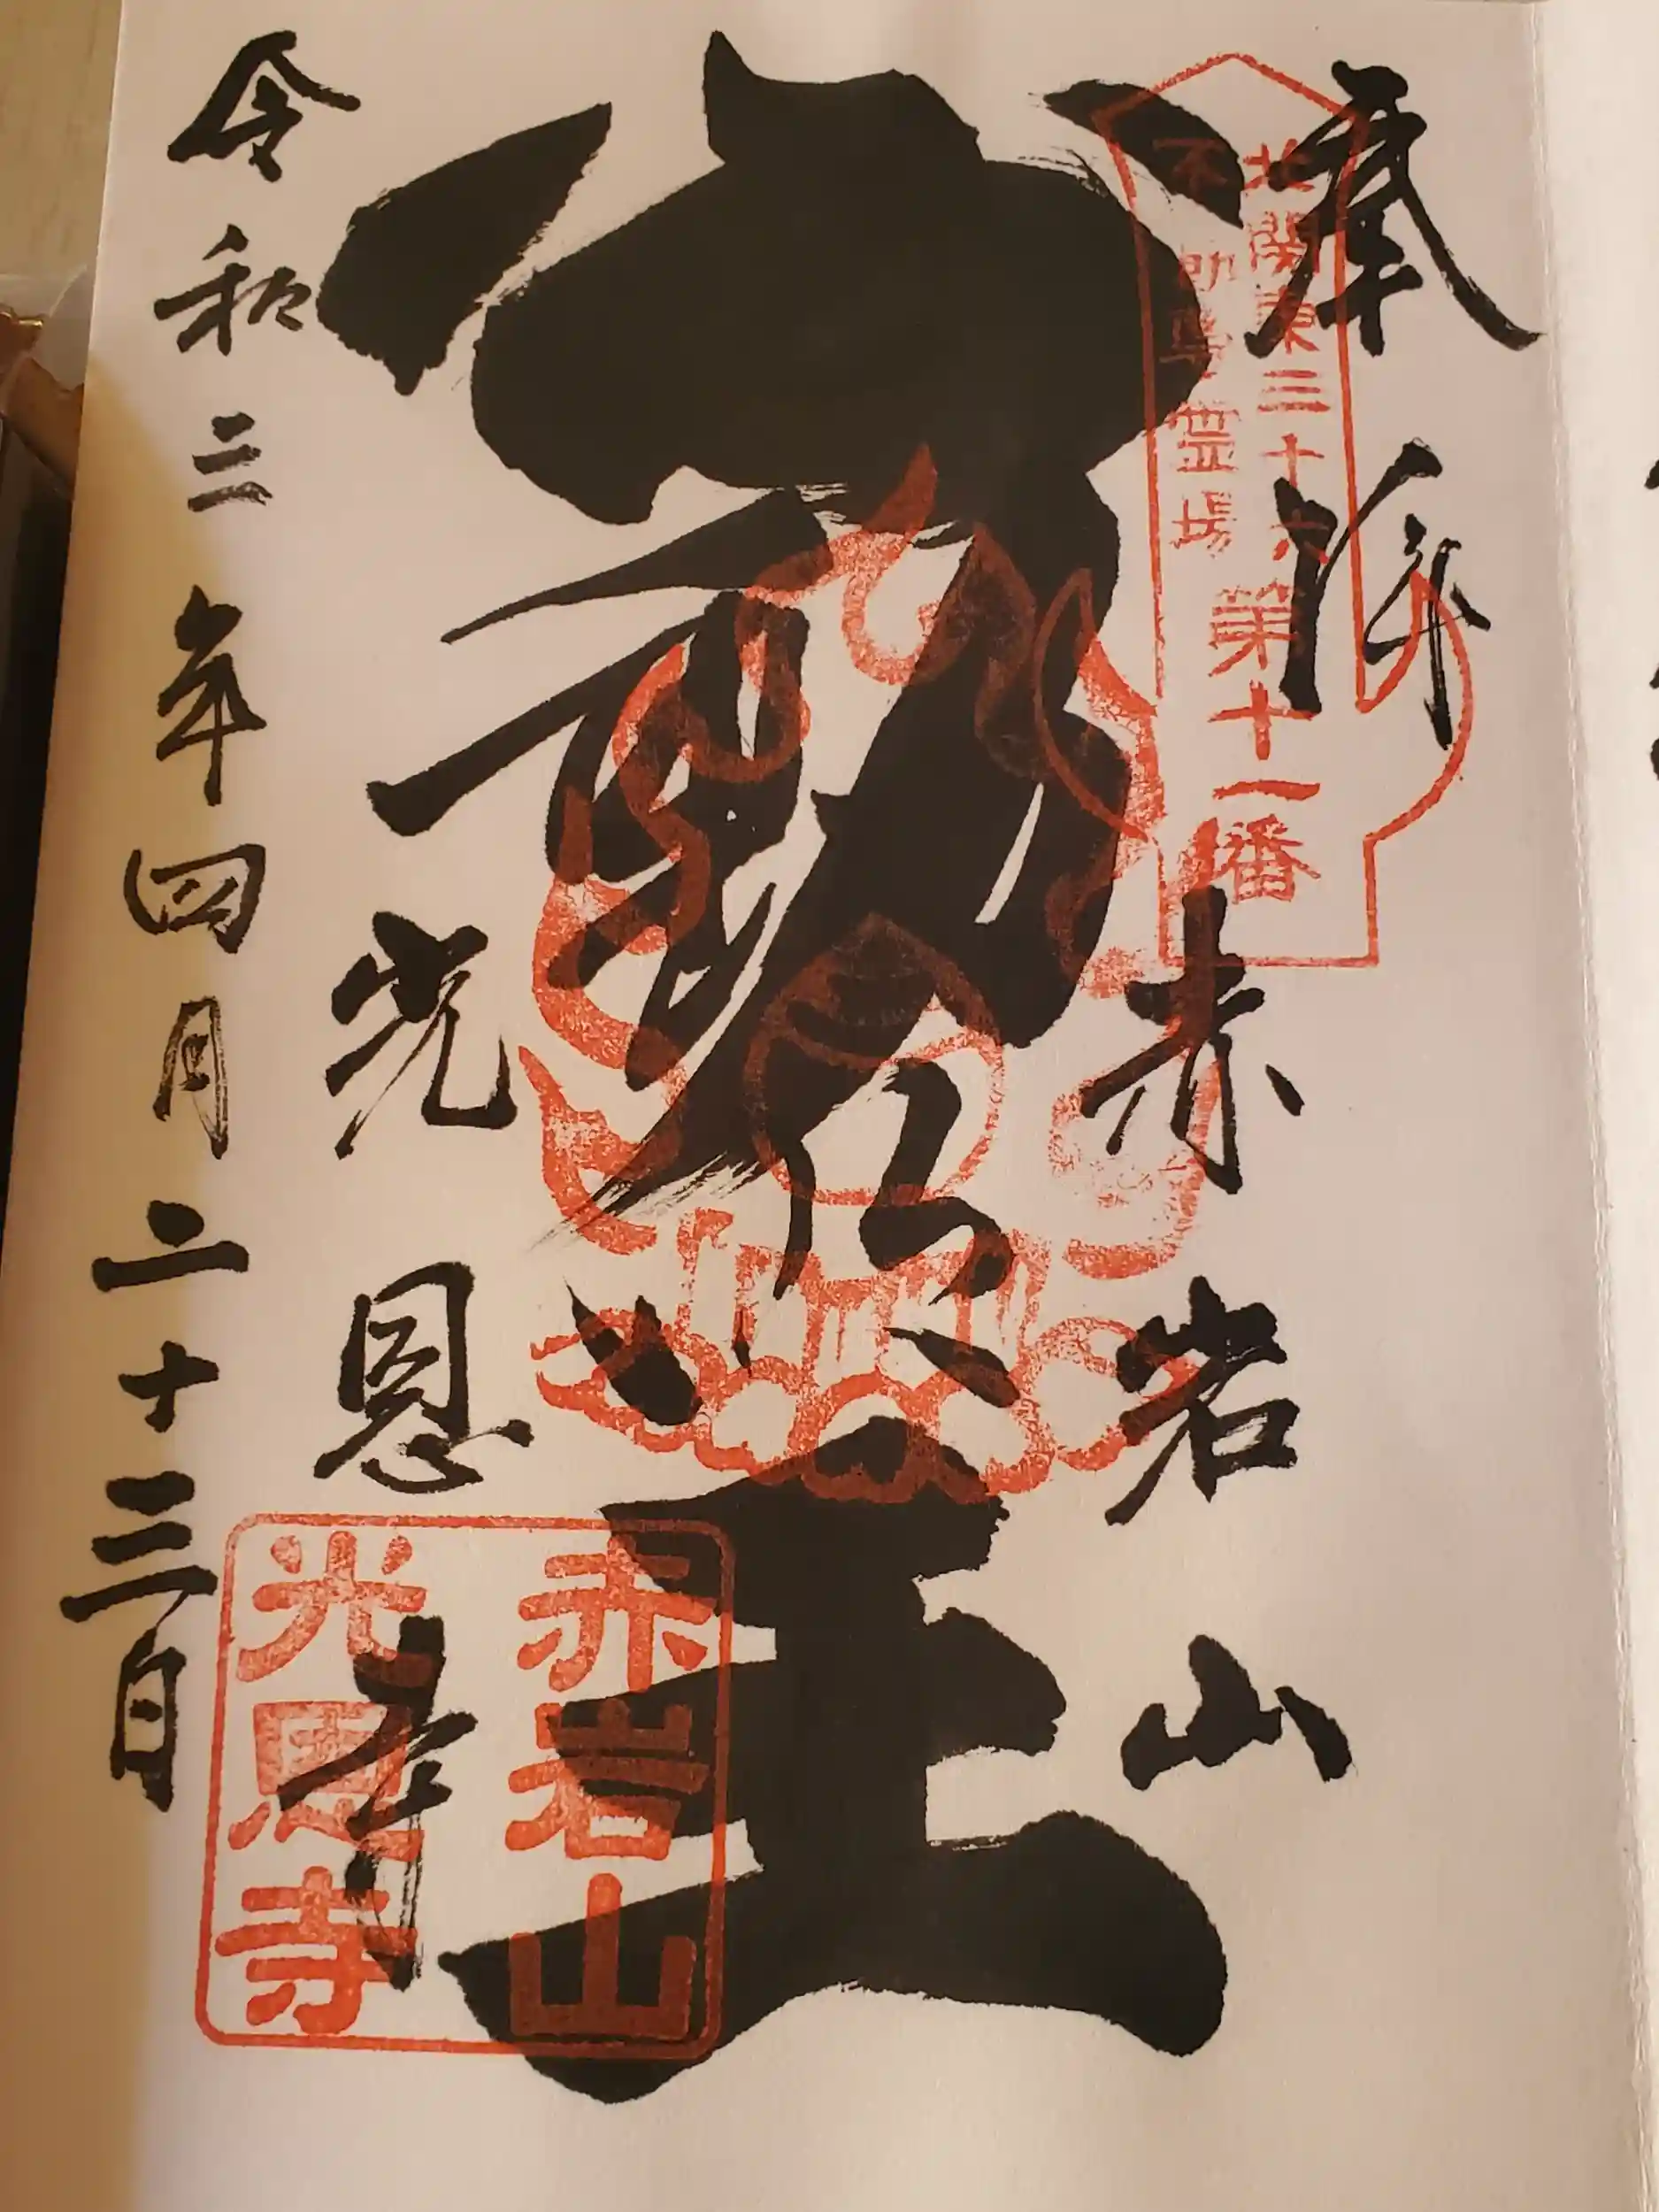 奉拝
北関東三十六
不動尊霊場
第十一番
赤岩山
光恩寺
赤岩山
光恩寺
令和三年四月二十三日